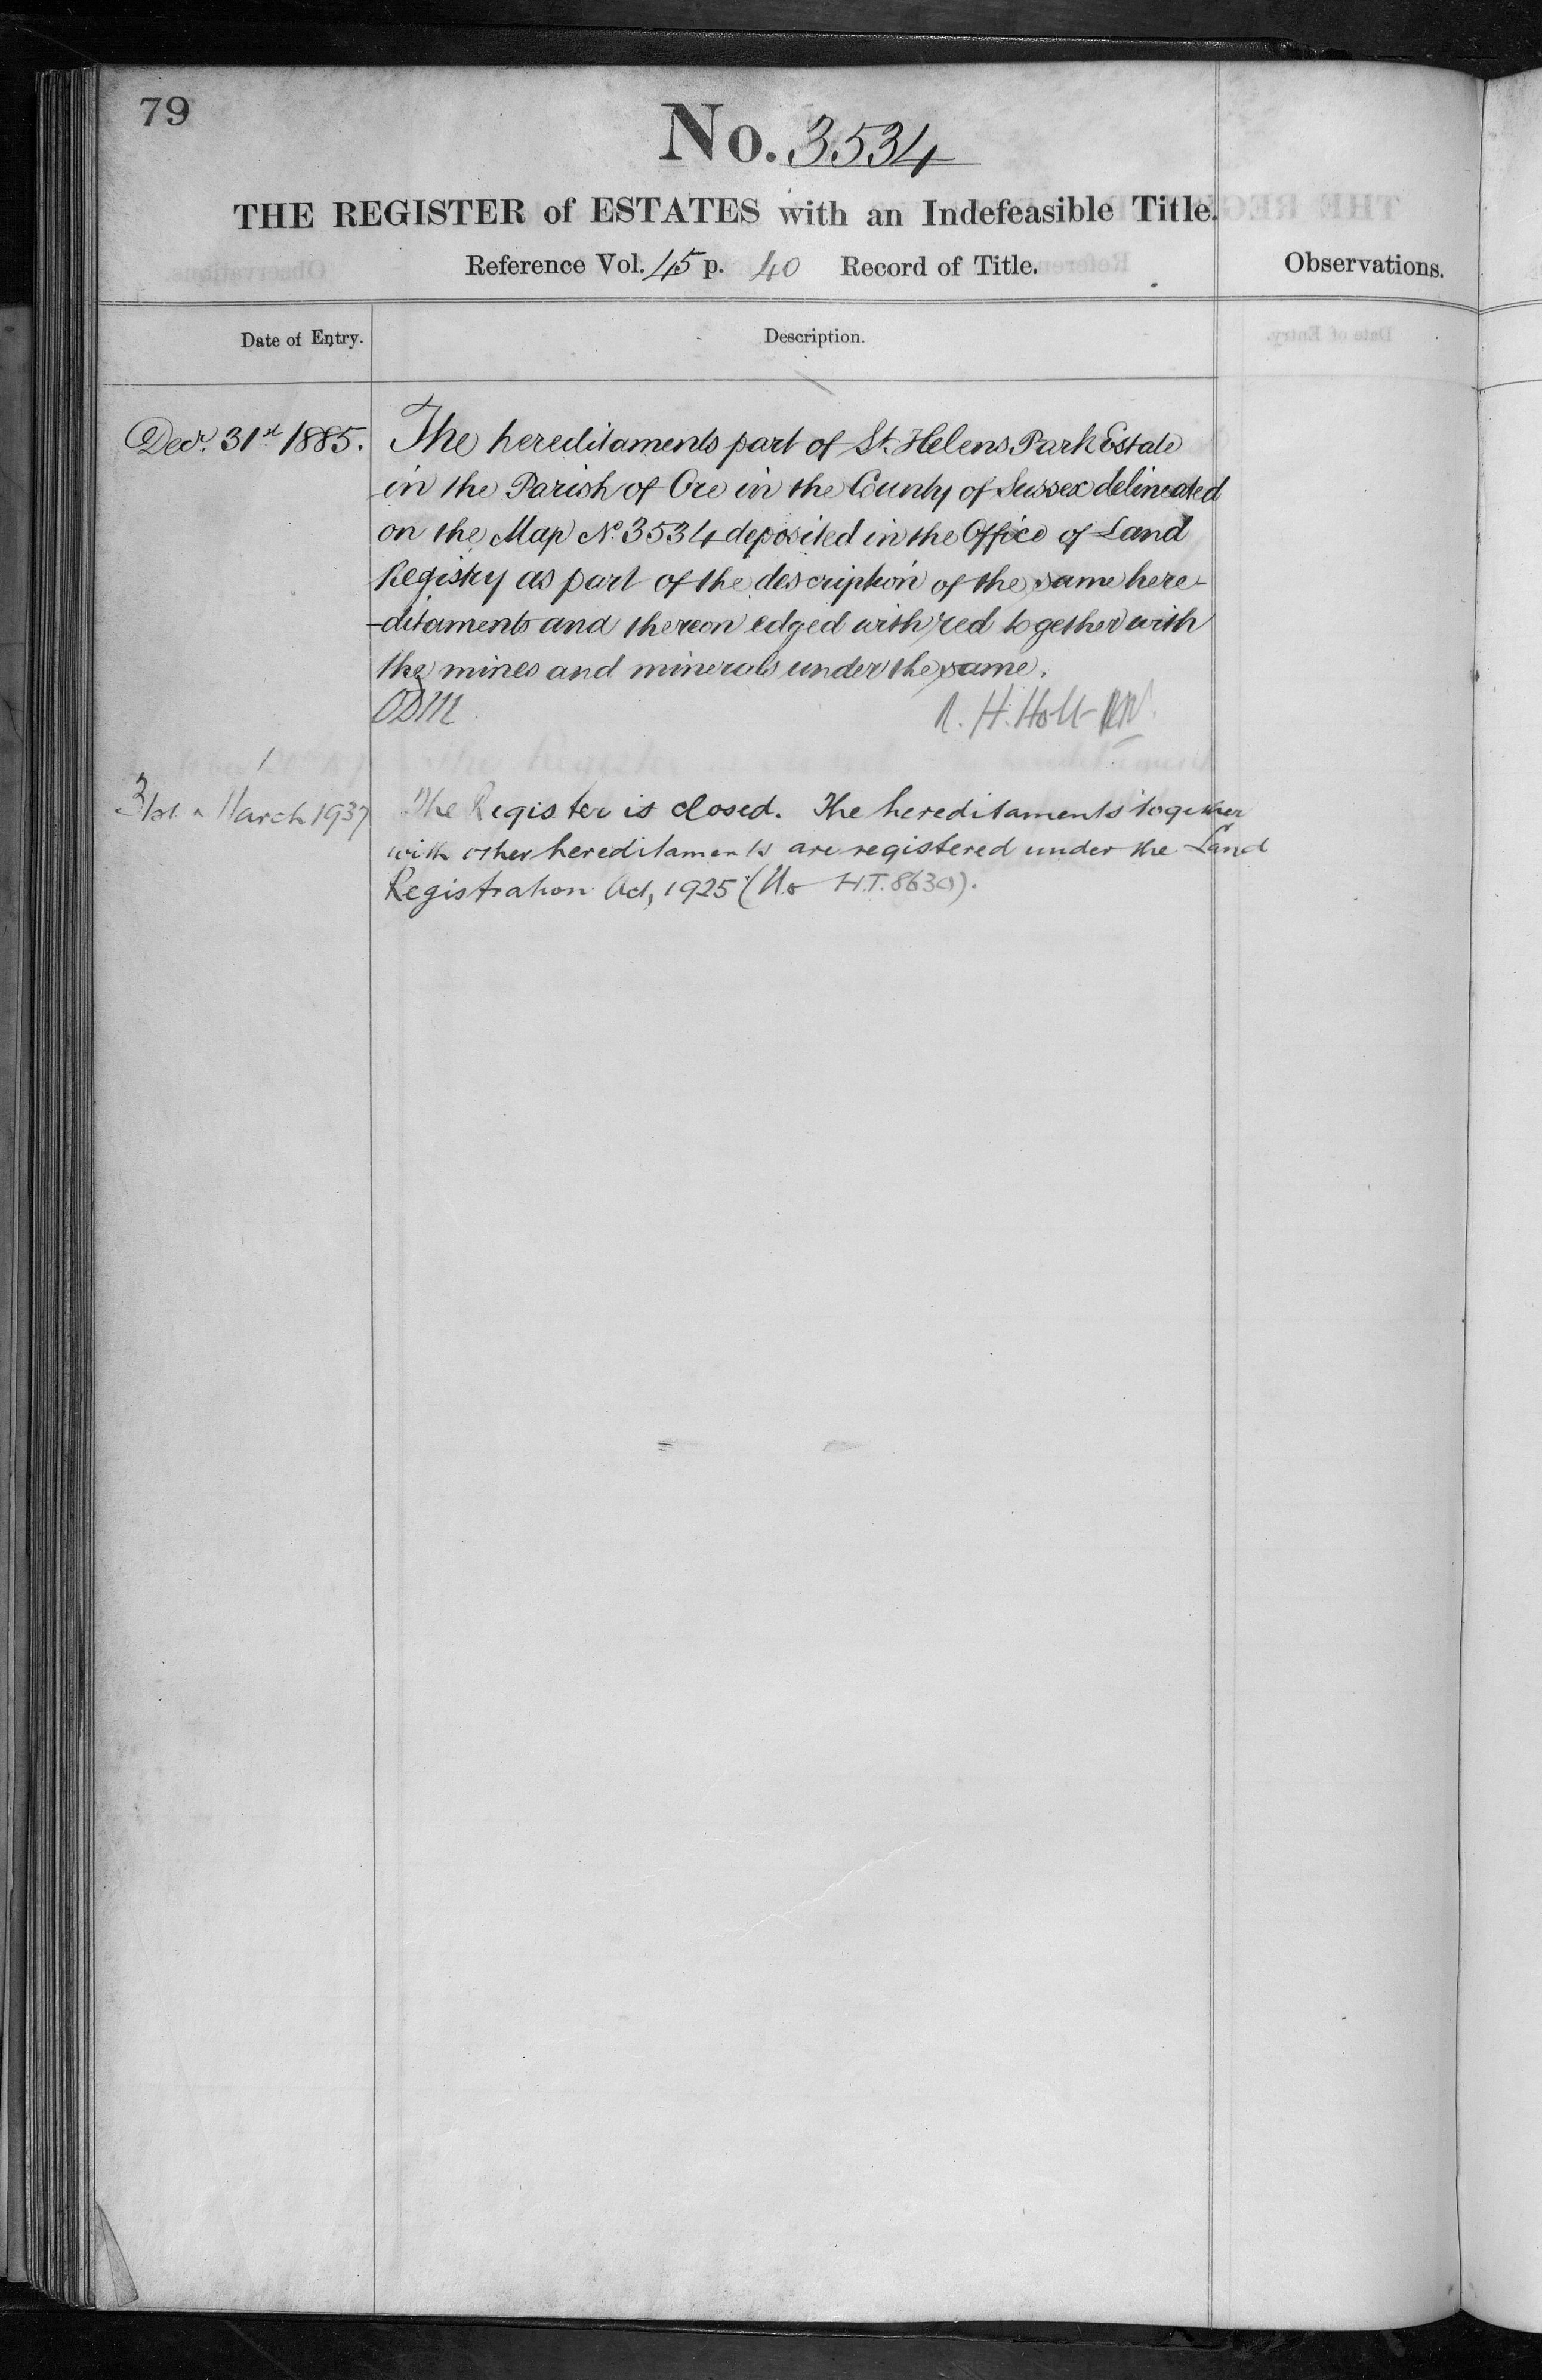 79
No. 3534
THE REGISTER of ESTATES with an Indefeasible Title.
Reference Vol. 45 p. 40 Record of Title.
Observations.
Date of Entry.
Description.
Decr. 31st 1885. The hereditaments part of St. Helens Park Estate
in the Parish of Ore in the County of Sussex delineated
on the Map No. 3534 deposited in the Office of Land
Registry as part of the description of the same here-
-ditaments and thereon edged with red together with
the mines and minerals under the same.
H. Holt
31st March 1937 The Register is closed. The hereditaments together
with other hereditaments are registered under the Land
Registration Act, 1925 (No